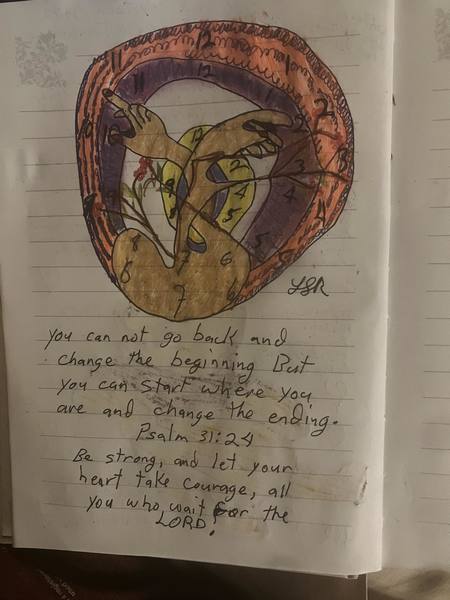 12
12
LSR
you can not go back and
change the beginning But
you can start where you
are and change the ending.
Psalm 31:24
Be strong, and let your
heart take courage, all
you who wait for the
LORD!